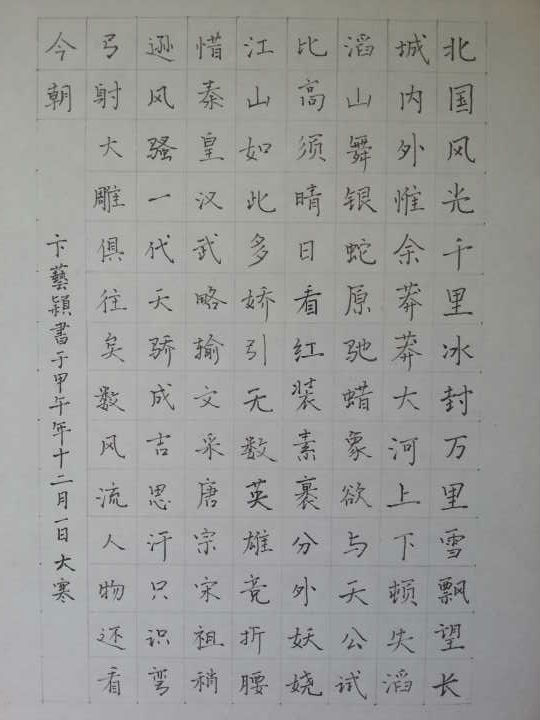 北国风光千里冰封万里雪飘望长
城内外惟余莽莽大河上下顿失滔
滔山舞银蛇原驰蜡象欲与天公试
比高须晴日看红装素裹分外妖娆
江山如此多娇引无数英雄竞折腰
惜秦皇汉武略输文采唐宗宋祖稍
逊风骚一代天骄成吉思汗只识弯
弓射大雕俱往矣数风流人物还看
今朝
卞藝穎書于甲午年十二月一日大寒